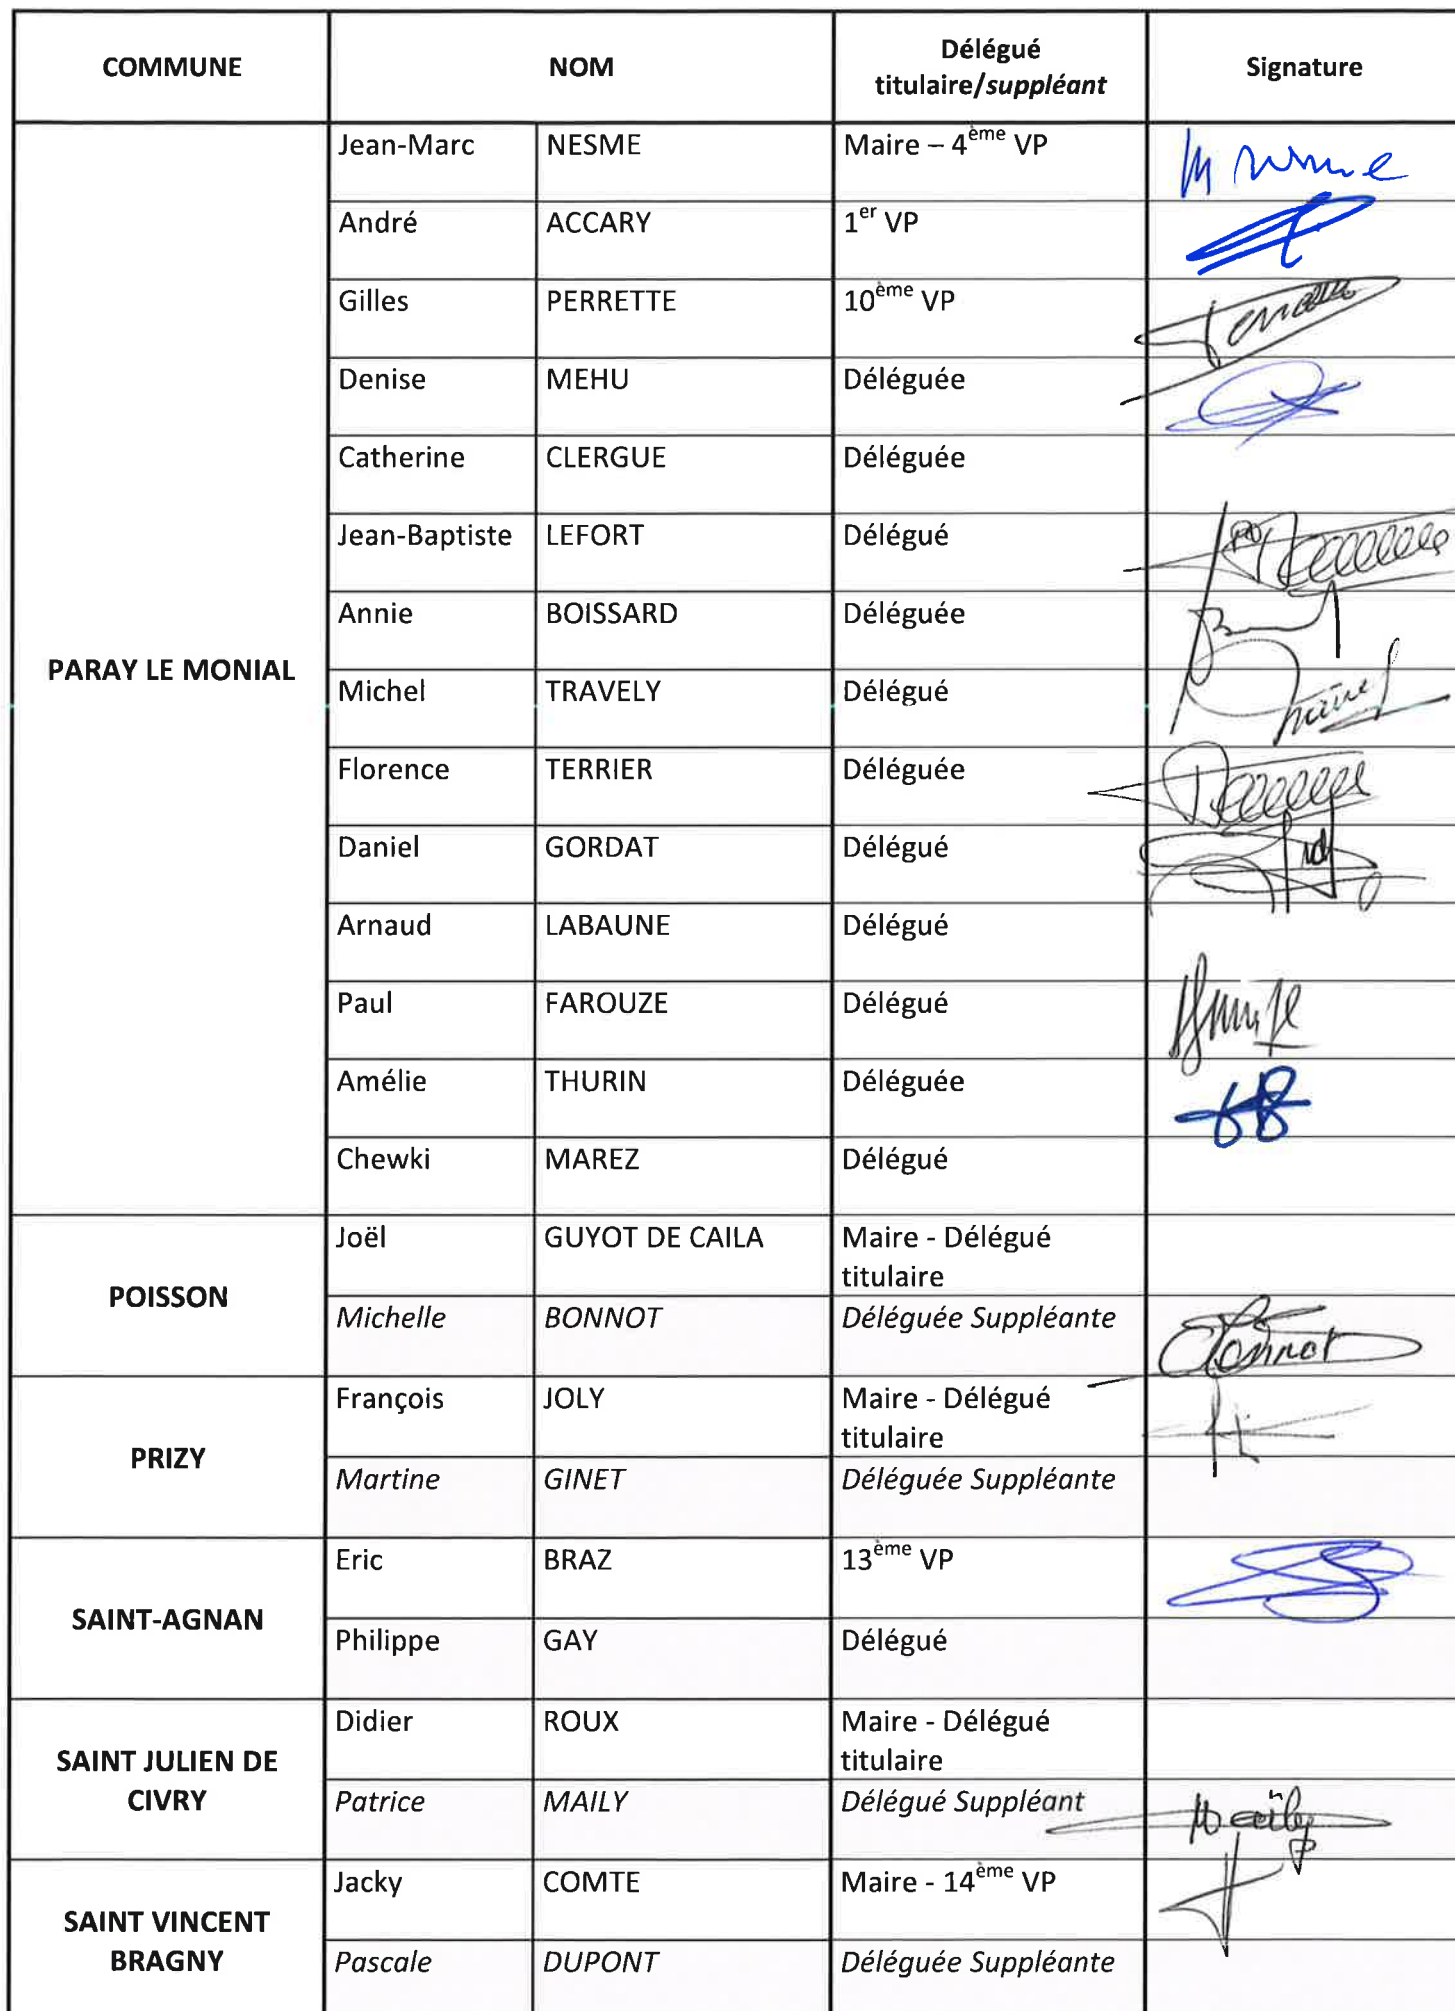 COMMUNE NOM Délégué titulaire/suppléant Signature
PARAY LE MONIAL
Jean-Marc NESME Maire – 4ème VP
André ACCARY 1er VP
Gilles PERRETTE 10ème VP
Denise MEHU Déléguée
Catherine CLERGUE Déléguée
Jean-Baptiste LEFORT Délégué
Annie BOISSARD Déléguée
Michel TRAVELY Délégué
Florence TERRIER Déléguée
Daniel GORDAT Délégué
Arnaud LABAUNE Délégué
Paul FAROUZE Délégué
Amélie THURIN Déléguée
Chewki MAREZ Délégué
POISSON
Joël GUYOT DE CAILA Maire - Délégué titulaire
Michelle BONNOT Déléguée Suppléante
PRIZY
François JOLY Maire - Délégué titulaire
Martine GINET Déléguée Suppléante
SAINT-AGNAN
Eric BRAZ 13ème VP
Philippe GAY Délégué
SAINT JULIEN DE CIVRY
Didier ROUX Maire - Délégué titulaire
Patrice MAILY Délégué Suppléant
SAINT VINCENT BRAGNY
Jacky COMTE Maire - 14ème VP
Pascale DUPONT Déléguée Suppléante